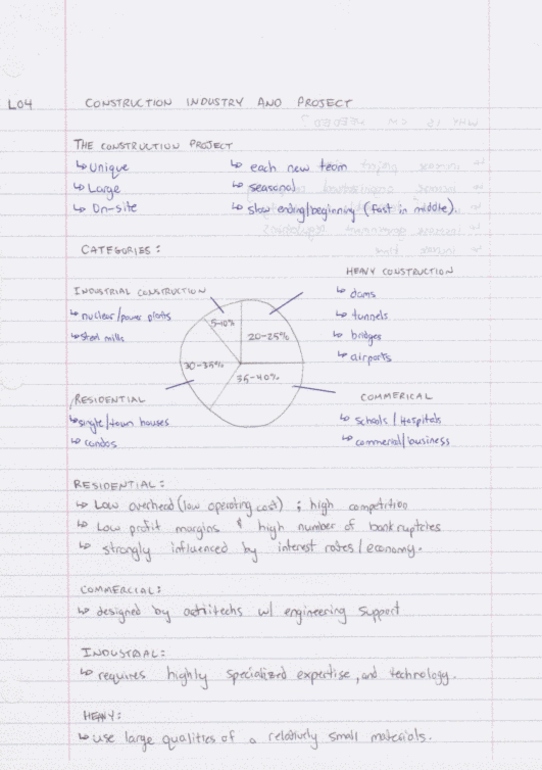 L04 CONSTRUCTION INDUSTRY AND PROJECT
THE CONSTRUCTION PROJECT
↳ Unique ↳ each new team
↳ Large ↳ seasonal
↳ On-site ↳ slow ending/beginning (fast in middle).
CATEGORIES:
HEAVY CONSTRUCTION
↳ dams
↳ tunnels
↳ bridges
↳ airports
INDUSTRIAL CONSTRUCTION
↳ nuclear/power plants
↳ steel mills
5-10%
20-25%
30-35%
35-40%
RESIDENTIAL
↳ single/town houses
↳ condos
COMMERICAL
↳ schools / Hospitals
↳ commerial/business
RESIDENTIAL:
↳ Low overhead (low operating cost) ; high competition
↳ Low profit margins & high number of bankruptcies
↳ strongly influenced by interest rates / economy.
COMMERCIAL:
↳ designed by w/ engineering support
INDUSTRIAL:
↳ requires highly specialized expertise, and technology.
HEAVY:
↳ use large qualities of a relatively small materials.